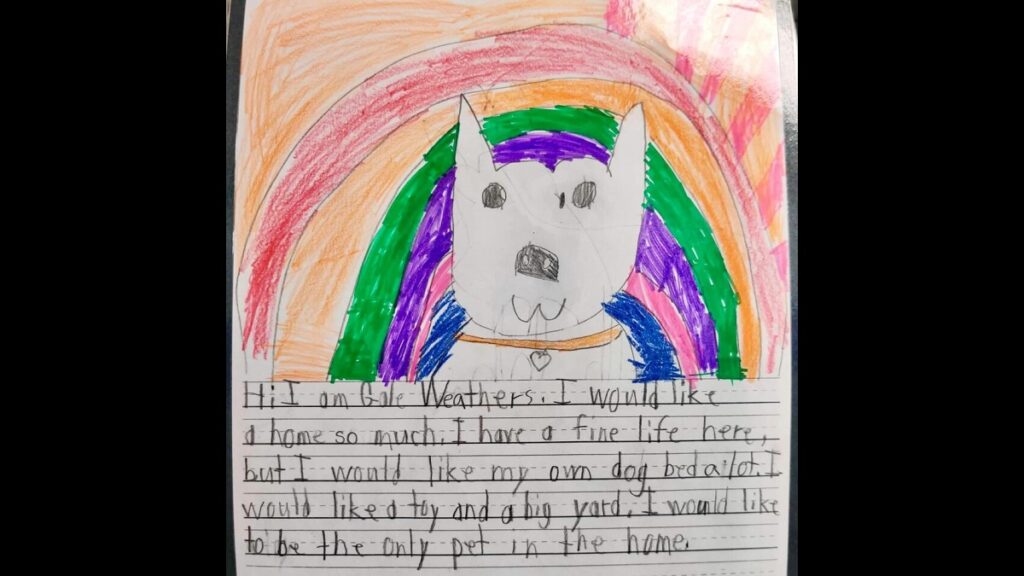 Hi I am Gale Weathers. I would like
a home so much. I have a fine life here,
but I would like my own dog bed a lot. I
would like a toy and a big yard. I would like
to be the only pet in the home.